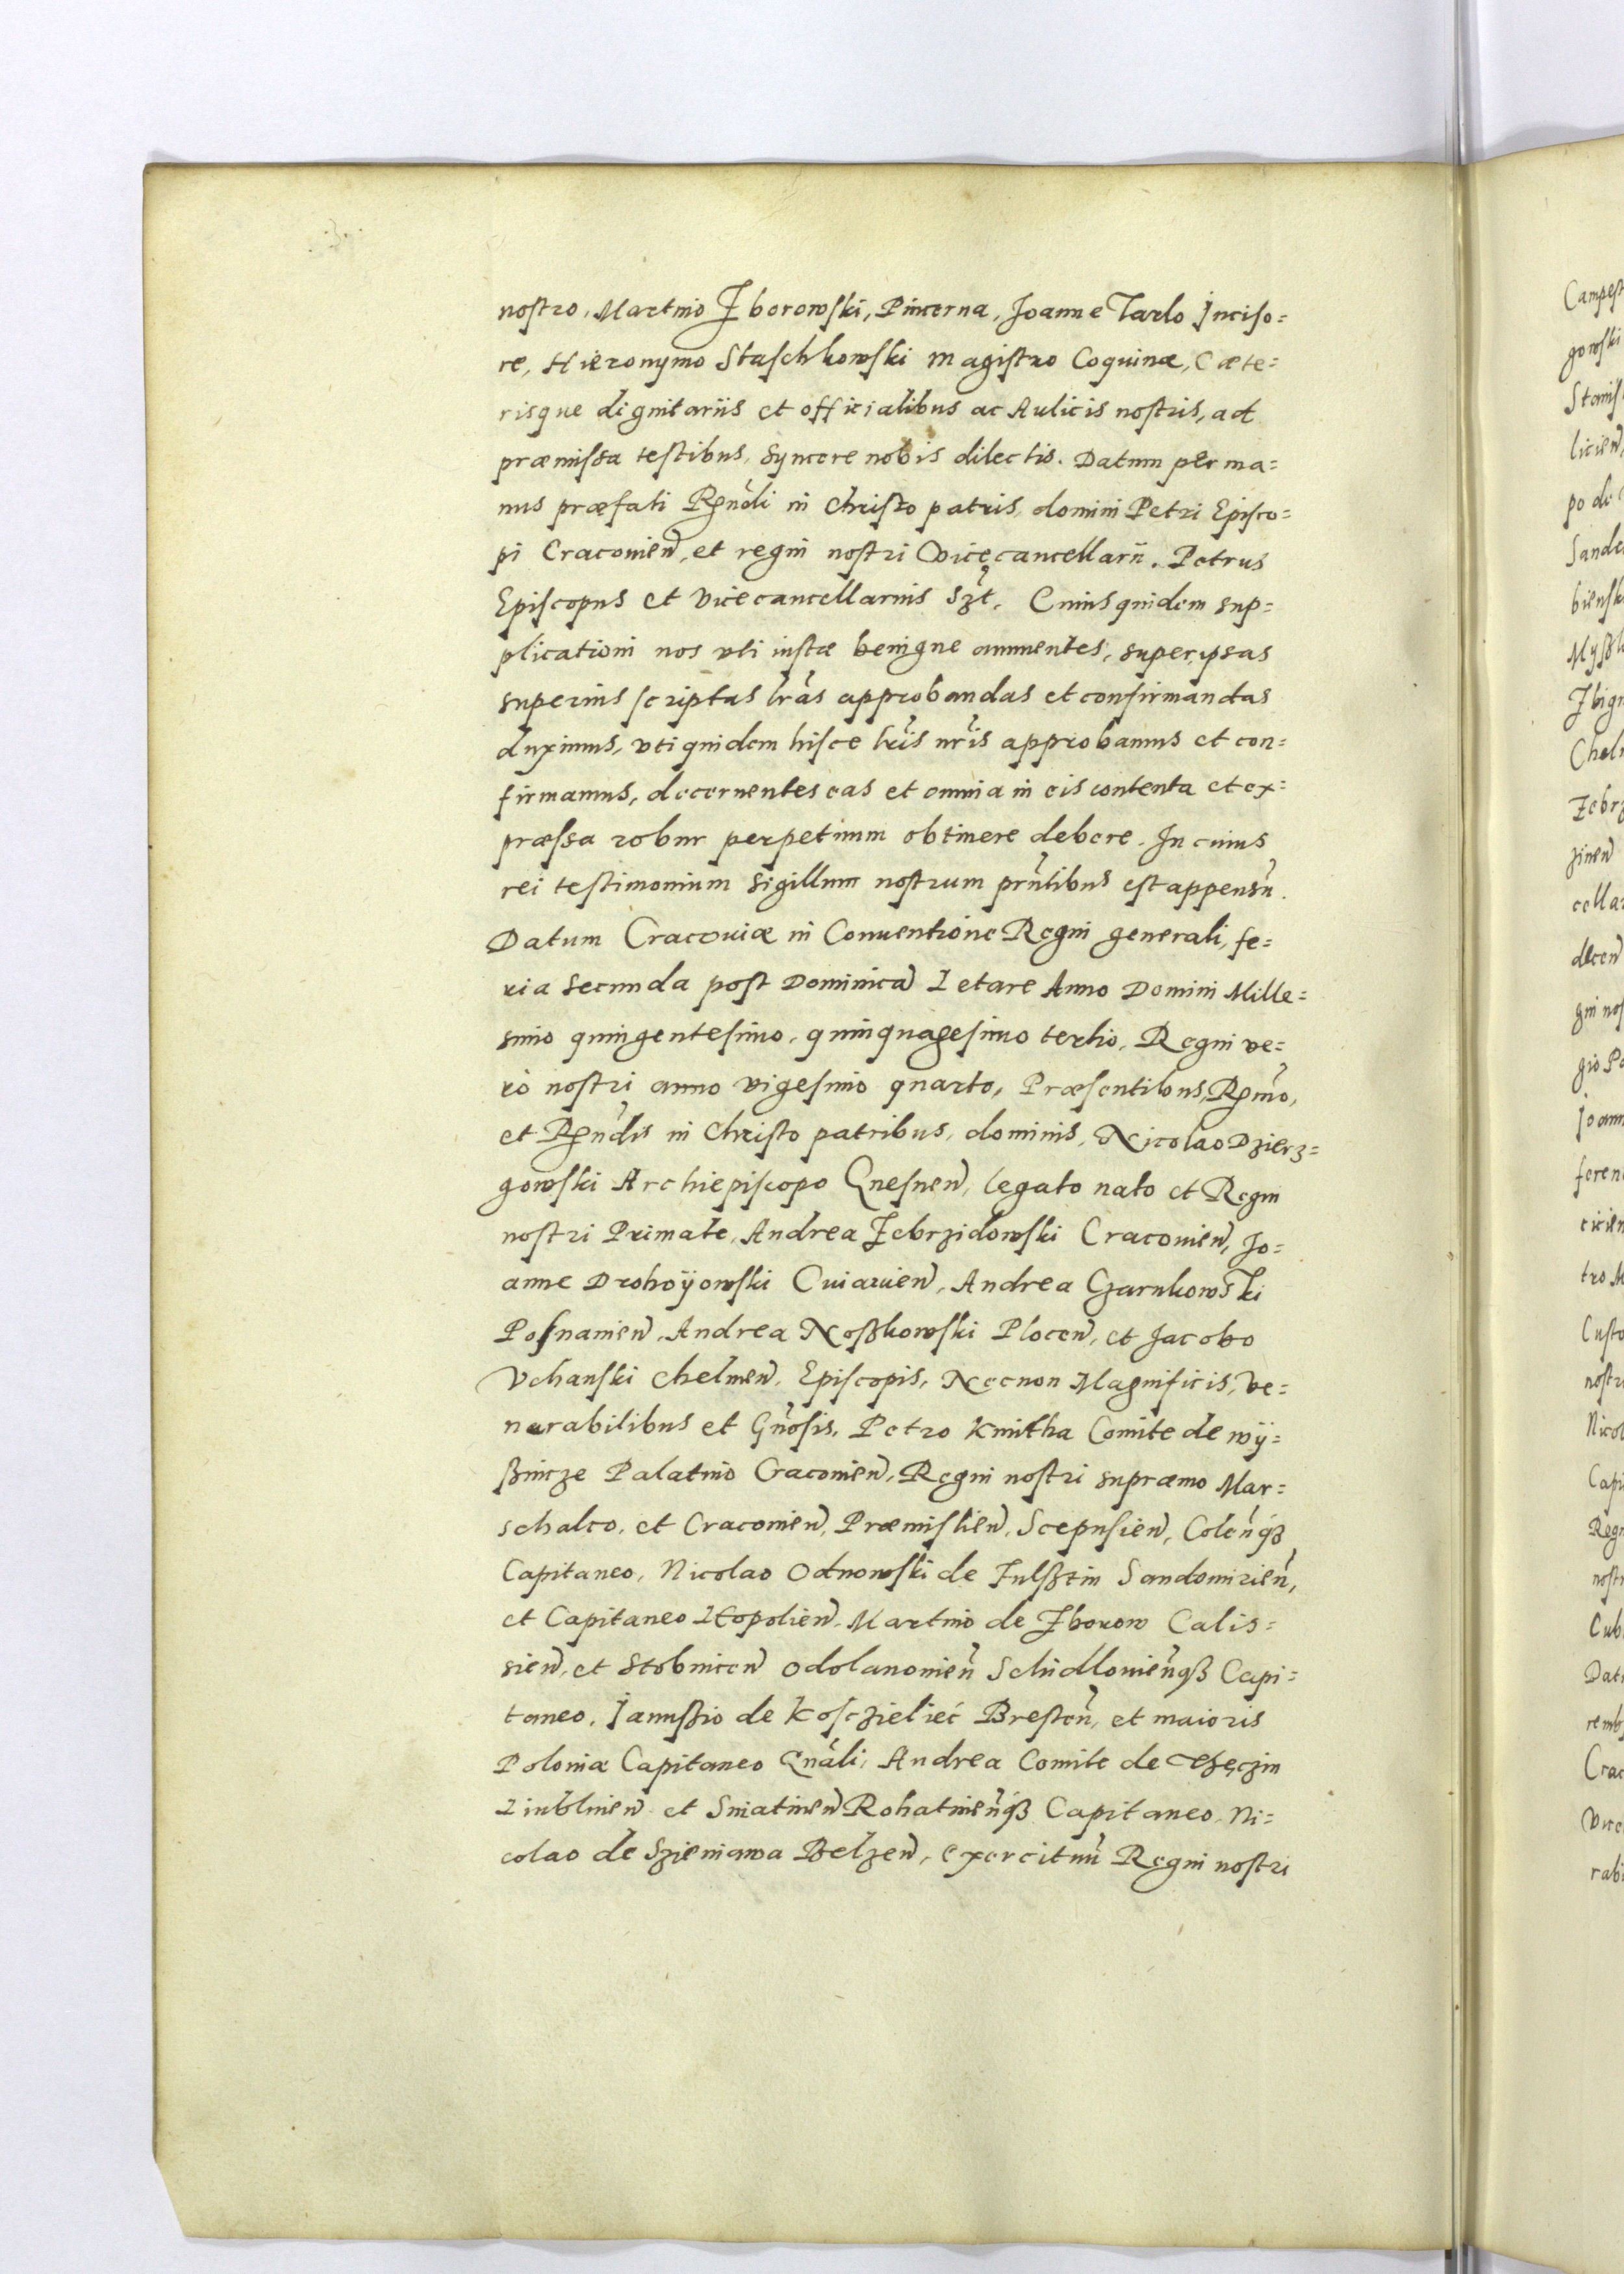 nostro, Martino Zborowski, Pincerna, Joanne Tarlo Jnciso=
re, Hieronymo Staschkowski Magistro Coquinæ, Cæte=
risque dignitariis et officialibus ac Aulicis nostris, ad
præmissa testibus, syncere nobis dilectis. Datum per ma=
nus præfati Rndi in Christo patris domini Petri Episco=
pi Cracovien, et regni nostri Vicecancellarii. Petrus
Episcopus et Vicecancellarius Szt. Cuius quidem sup=
plicationi nos uti iustæ benigne annuentes, super ipsas
superius scriptas lras approbandas et confirmandas
duximus, uti quidem hisce lris nris approbamus et con=
firmamus, decernentes eas et omnia in eis contenta et ex=
præssa robur perpetuum obtinere debere. In cuius
rei testimonium sigillum nostrum prntibus est appensu.
Datum Cracoviæ in Conventione Regni generali, fe=
ria secunda post Dominica Letare Anno Domini Mille=
simo quingentesimo, quinquagesimo tertio, Regni ve=
rò nostri anno vigesimo quarto, Præsentibus, Rmo,
et Rndis in Christo patribus, dominis, Nicolao Dzierz=
gowski Archiepiscopo Gnesnen, legato nato et Regni
nostri Primate, Andrea Zebrzidowski Cracovien, Jo=
anne Drohoÿowski Cuiavien, Andrea Czarnkowski
Posnanien, Andrea Noßkowski Plocen, et Jacobo
Vchanski Chelmen, Episcopis, Necnon Magnificis, Ve=
nerabilibus et Gnosis, Petro Kmitha Comite de wÿ=
ßnicze Palatino Cracovien, Regni nostri supræmo Mar=
schalco, et Cracovien, Præmislien, Scepusien, Colenqß
Capitaneo, Nicolao Odnowski de Fulßtin Sandomirien,
et Capitaneo Leopolien, Martino de Zborow Calis=
sien, et Stobnicen Odolanovien Schidlovienqß Capi=
taneo, Janußio de Kosczieliec Bresten, et maioris
Poloniæ Capitaneo Gnali, Andrea Comite de Thęczin
Liublinen et Sniatinen Rohatinenqß Capitaneo, Ni=
colao de Szieniawa Belzen, exercituu Regni nostri